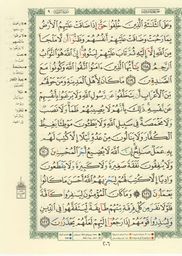 وَعَلَى ٱلثَّلَٰثَةِ ٱلَّذِينَ خُلِّفُوا۟ حَتَّىٰٓ إِذَا ضَاقَتْ عَلَيْهِمُ ٱلْأَرْضُ
بِمَا رَحُبَتْ وَضَاقَتْ عَلَيْهِمْ أَنفُسُهُمْ وَظَنُّوٓا۟ أَن لَّا مَلْجَأَ
مِنَ ٱللَّهِ إِلَّآ إِلَيْهِ ثُمَّ تَابَ عَلَيْهِمْ لِيَتُوبُوٓا۟ إِنَّ ٱللَّهَ هُوَ ٱلتَّوَّابُ
ٱلرَّحِيمُ ١١٨ يَٰٓأَيُّهَا ٱلَّذِينَ ءَامَنُوا۟ ٱتَّقُوا۟ ٱللَّهَ وَكُونُوا۟ مَعَ
ٱلصَّٰدِقِينَ ١١٩ مَا كَانَ لِأَهْلِ ٱلْمَدِينَةِ وَمَنْ حَوْلَهُم
مِّنَ ٱلْأَعْرَابِ أَن يَتَخَلَّفُوا۟ عَن رَّسُولِ ٱللَّهِ وَلَا يَرْغَبُوا۟ بِأَنفُسِهِمْ
عَن نَّفْسِهِۦ ذَٰلِكَ بِأَنَّهُمْ لَا يُصِيبُهُمْ ظَمَأٌ وَلَا نَصَبٌ
وَلَا مَخْمَصَةٌ فِى سَبِيلِ ٱللَّهِ وَلَا يَطَـُٔونَ مَوْطِئًا يَغِيظُ
ٱلْكُفَّارَ وَلَا يَنَالُونَ مِنْ عَدُوٍّ نَّيْلًا إِلَّا كُتِبَ لَهُم
بِهِۦ عَمَلٌ صَٰلِحٌ إِنَّ ٱللَّهَ لَا يُضِيعُ أَجْرَ ٱلْمُحْسِنِينَ ١٢٠
وَلَا يُنفِقُونَ نَفَقَةً صَغِيرَةً وَلَا كَبِيرَةً وَلَا يَقْطَعُونَ
وَادِيًا إِلَّا كُتِبَ لَهُمْ لِيَجْزِيَهُمُ ٱللَّهُ أَحْسَنَ مَا كَانُوا۟
يَعْمَلُونَ ١٢١ وَمَا كَانَ ٱلْمُؤْمِنُونَ لِيَنفِرُوا۟ كَآفَّةً
فَلَوْلَا نَفَرَ مِن كُلِّ فِرْقَةٍ مِّنْهُمْ طَآئِفَةٌ لِّيَتَفَقَّهُوا۟ فِى ٱلدِّينِ
وَلِيُنذِرُوا۟ قَوْمَهُمْ إِذَا رَجَعُوٓا۟ إِلَيْهِمْ لَعَلَّهُمْ يَحْذَرُونَ ١٢٢
٢٠٦